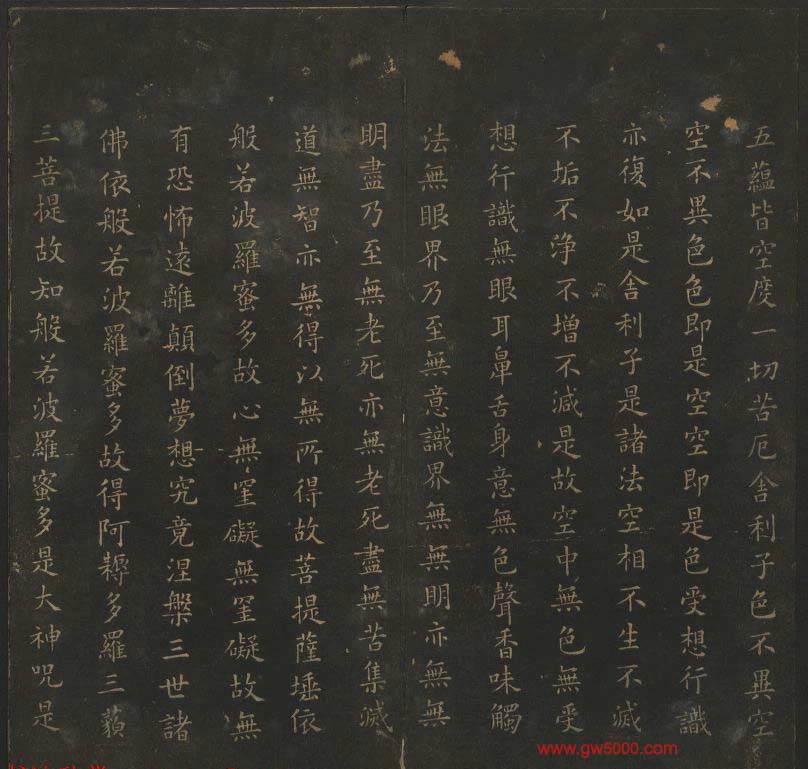 五蘊皆空度一切苦厄舍利子色不異空
空不異色色即是空空即是色受想行識
亦復如是舍利子是諸法空相不生不滅
不垢不淨不增不減是故空中無色無受
想行識無眼耳鼻舌身意無色聲香味觸
法無眼界乃至無意識界無無明亦無無
明盡乃至無老死亦無老死盡無苦集滅
道無智亦無得以無所得故菩提薩埵依
般若波羅蜜多故心無罣礙無罣礙故無
有恐怖遠離顛倒夢想究竟涅槃三世諸
佛依般若波羅蜜多故得阿耨多羅三藐
三菩提故知般若波羅蜜多是大神咒是
www.gw5000.com